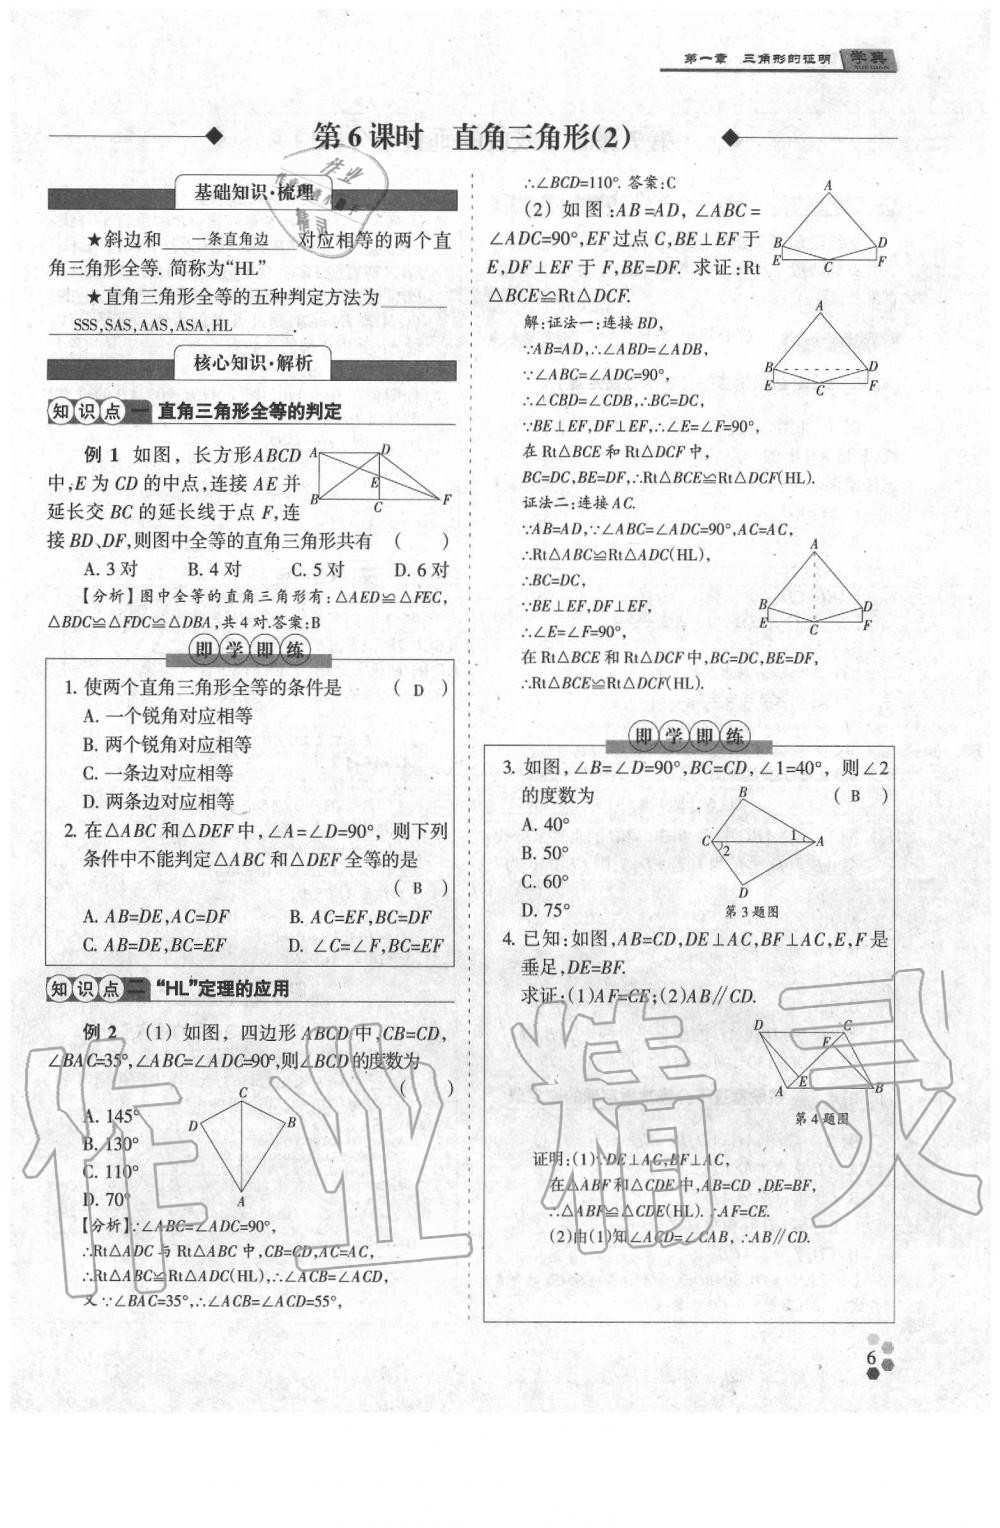 第一章 三角形的证明 学典
第6课时 直角三角形(2)
基础知识·梳理
★斜边和 一条直角边 对应相等的两个直
角三角形全等. 简称为“HL”
★直角三角形全等的五种判定方法为
SSS,SAS,AAS,ASA,HL .
核心知识·解析
知识点一 直角三角形全等的判定
例 1 如图，长方形ABCD
中,E为 CD 的中点,连接 AE 并
延长交 BC 的延长线于点 F,连
接BD、DF,则图中全等的直角三角形共有 ( )
A. 3对 B. 4对 C. 5对 D. 6对
A D E B C F
【分析】图中全等的直角三角形有:△AED≌△FEC,
△BDC≌△FDC≌△DBA,共4对.答案:B
即学即练
1. 使两个直角三角形全等的条件是 ( D )
A. 一个锐角对应相等
B. 两个锐角对应相等
C. 一条边对应相等
D. 两条边对应相等
2. 在△ABC 和△DEF中,∠A=∠D=90°，则下列
条件中不能判定△ABC 和△DEF全等的是
( B )
A. AB=DE,AC=DF B. AC=EF,BC=DF
C. AB=DE,BC=EF D. ∠C=∠F,BC=EF
知识点二 “HL”定理的应用
例 2 (1) 如图，四边形 ABCD 中,CB=CD,
∠BAC=35°,∠ABC=∠ADC=90°,则∠BCD的度数为
( )
A. 145°
B. 130°
C. 110°
D. 70°
C D B A
【分析】∵∠ABC=∠ADC=90°,
∴Rt△ADC与Rt△ABC中,CB=CD,AC=AC,
∴Rt△ABC≌Rt△ADC(HL),∴∠ACB=∠ACD,
又∵∠BAC=35°,∴∠ACB=∠ACD=55°,
∴∠BCD=110°. 答案:C
(2) 如图:AB=AD, ∠ABC=
∠ADC=90°,EF过点C,BE⊥EF于
E,DF⊥EF于F,BE=DF. 求证:Rt
△BCE≌Rt△DCF.
A B D E C F
解:证法一:连接BD,
∵AB=AD,∴∠ABD=∠ADB,
∵∠ABC=∠ADC=90°,
∴∠CBD=∠CDB,∴BC=DC,
∵BE⊥EF,DF⊥EF,∴∠E=∠F=90°,
在Rt△BCE和Rt△DCF中,
BC=DC,BE=DF,∴Rt△BCE≌Rt△DCF(HL).
A B D E C F
证法二:连接AC.
∵AB=AD,∵∠ABC=∠ADC=90°,AC=AC,
∴Rt△ABC≌Rt△ADC(HL),
∴BC=DC,
∵BE⊥EF,DF⊥EF,
∴∠E=∠F=90°,
在Rt△BCE和Rt△DCF中,BC=DC,BE=DF,
∴Rt△BCE≌Rt△DCF(HL).
A B D E C F
即学即练
3. 如图,∠B=∠D=90°,BC=CD,∠1=40°，则∠2
的度数为 ( B )
A. 40°
B. 50°
C. 60°
D. 75°
B C 2 1 A D
第3题图
4. 已知:如图,AB=CD,DE⊥AC,BF⊥AC,E,F是
垂足,DE=BF.
求证:(1)AF=CE;(2)AB∥CD.
D C F E A B
第4题图
证明:(1)∵DE⊥AC,BF⊥AC,
在△ABF和△CDE中,AB=CD ,DE=BF,
∴△ABF≌△CDE(HL).∴AF=CE.
(2)由(1)知∠ACD=∠CAB, ∴AB∥CD.
6
作业精灵